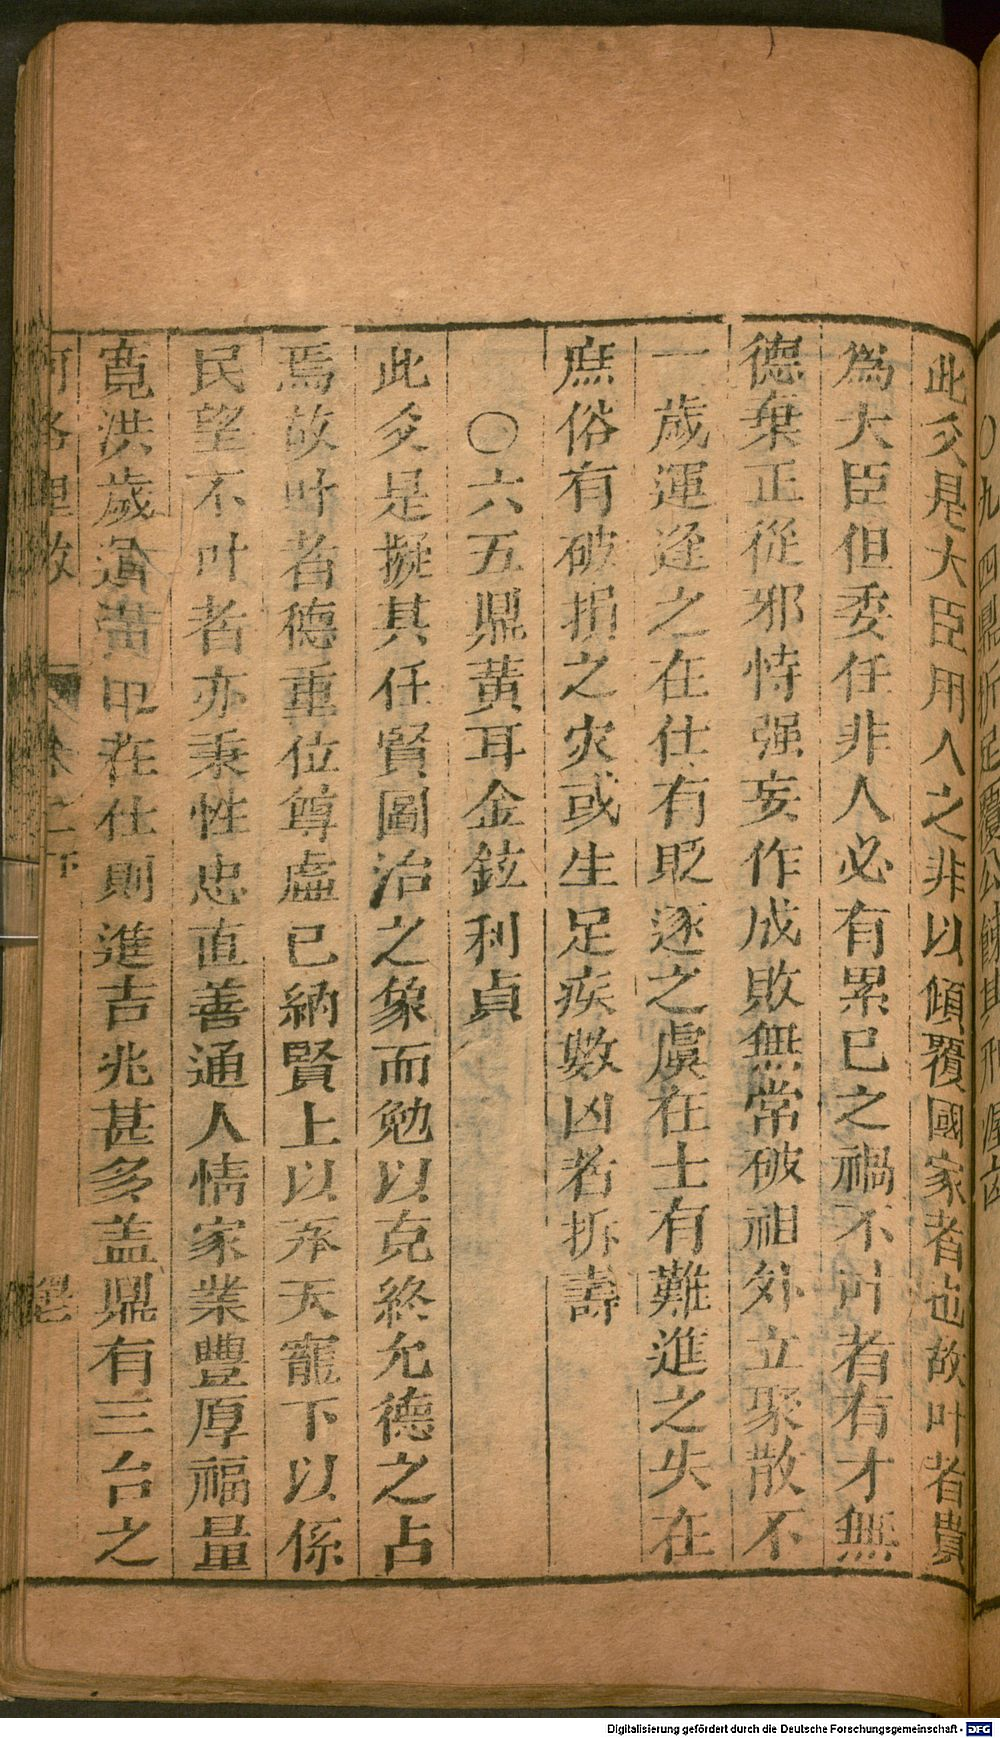 〇九四鼎折足覆公餗其形渥凶
此爻是大臣用人之非以傾覆國家者也故叶者貴
為大臣但委任非人必有累已之禍不叶者有才無
德棄正從邪恃强妄作成敗無常破祖外立聚散不
一歲運逢之在仕有貶逐之虞在士有難進之失在
庶俗有破損之灾或生足疾數凶者折壽
〇六五鼎黃耳金鉉利貞
此爻是擬其任賢圖治之象而勉以克終允德之占
焉故叶者德重位尊虛已納賢上以承天寵下以係
民望不叶者亦秉性忠直善通人情家業豐厚福量
寬洪歲運黃甲在仕則進吉兆甚多盖鼎有三台之
河洛理數 卷七下
Digitalisierung gefördert durch die Deutsche Forschungsgemeinschaft - DFG